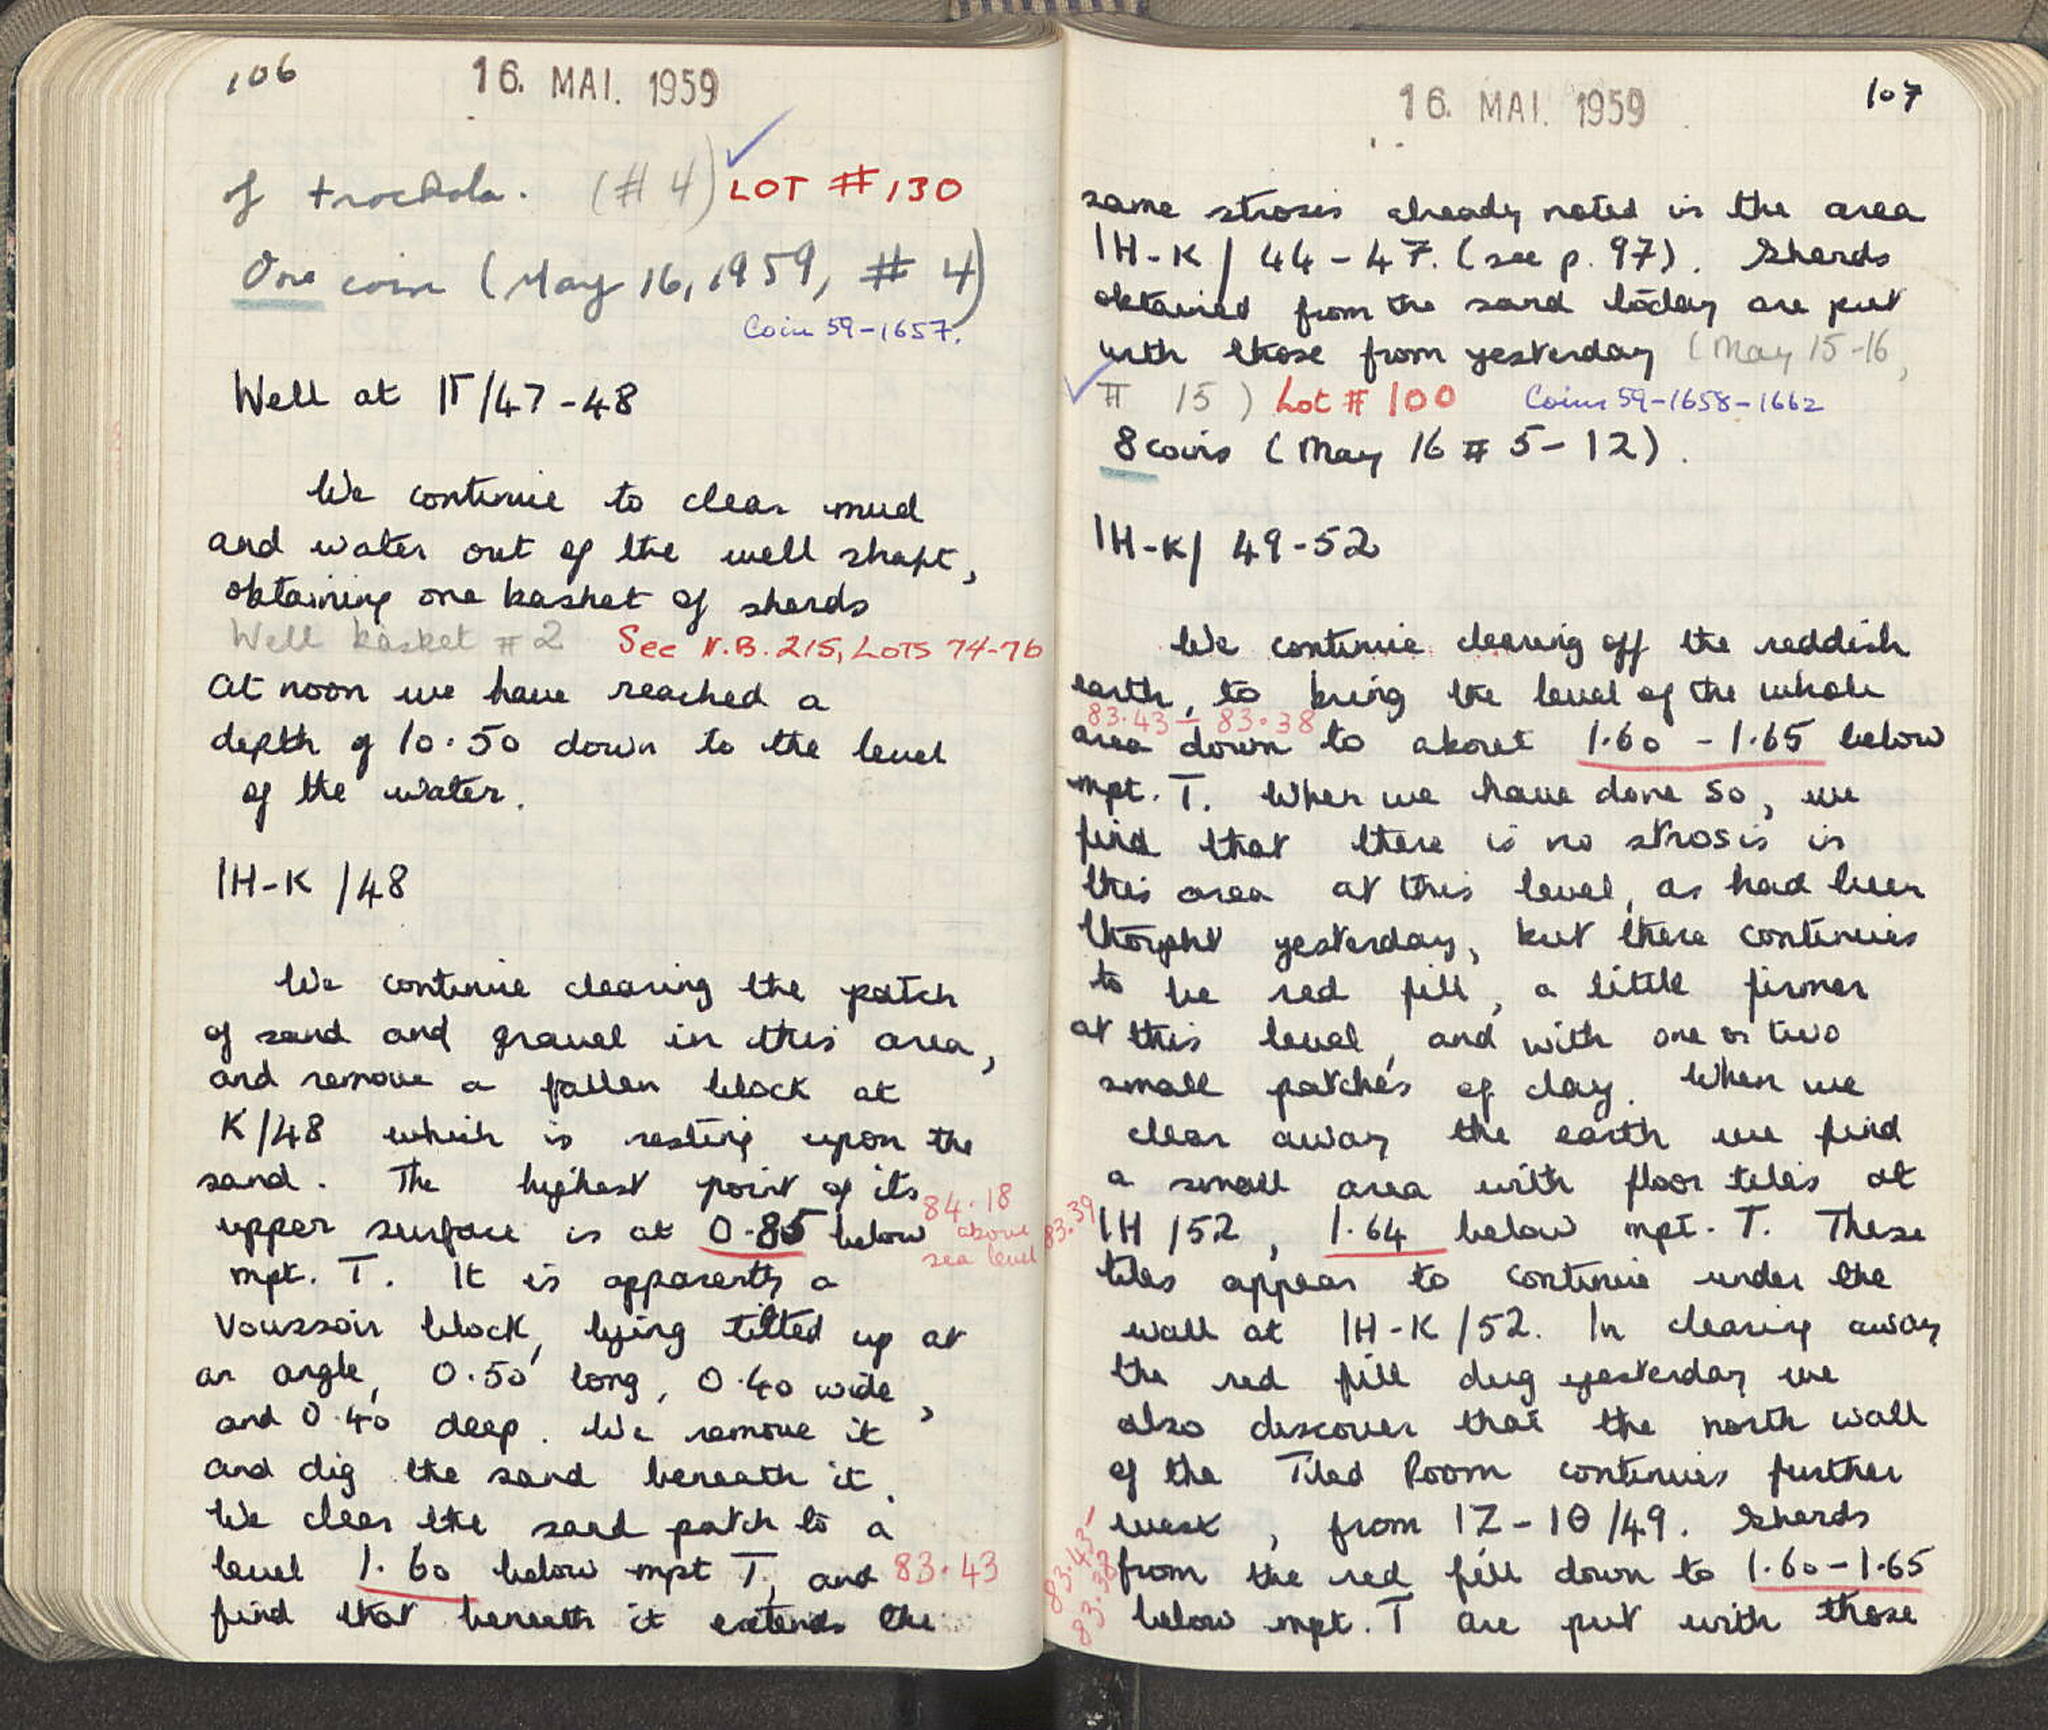 106
16. MAI. 1959
of trochola. (#4) LOT #130
One coin (May 16, 1959, #4)
Coin 59-1657.
Well at IΓ/47-48
We continue to clear mud
and water out of the well shaft,
obtaining one basket of sherds
Well basket #2 See N.B. 215, LOTS 74-76
At noon we have reached a
depth of 10.50 down to the level
of the water.
IH-K/48
We continue clearing the patch
of sand and gravel in this area,
and remove a fallen block at
K/48 which is resting upon the
sand. The highest point of its
84.18
upper surface is at 0.85 below above
sea level
mpt. T. It is apparently a
voussoir block, lying tilted up at
an angle, 0.50 long, 0.40 wide,
and 0.40 deep. We remove it
and dig the sand beneath it.
We clear the sand patch to a
level 1.60 below mpt T, and 83.43
find that beneath it extends the
16. MAI. 1959
107
same strosis already noted in the area
IH-K/44-47. (see p. 97). Sherds
obtained from the sand today are put
with those from yesterday (May 15-16,
# 15) Lot #100 Coins 59-1658-1662
8 coins (May 16 #5-12).
IH-K/49-52
We continue clearing off the reddish
earth, to bring the level of the whole
83.43 - 83.38
area down to about 1.60-1.65 below
mpt. T. When we have done so, we
find that there is no strosis in
this area at this level, as had been
thought yesterday, but there continues
to be red fill, a little firmer
at this level, and with one or two
small patches of clay. When we
clear away the earth we find
a small area with floor tiles at
83.39 IH/52, 1.64 below mpt. T. These
tiles appear to continue under the
wall at IH-K/52. In clearing away
the red fill dug yesterday we
also discover that the north wall
of the Tiled Room continues further
west, from IZ-IΘ/49. Sherds
83.43- from the red fill down to 1.60-1.65
83.38 below mpt. T are put with those